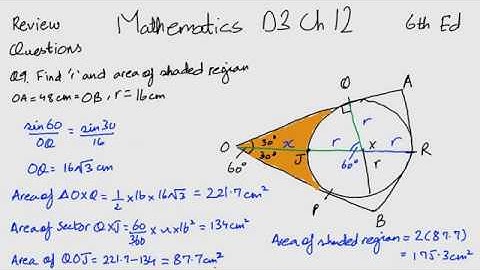 Review
Questions
Mathematics D3 Ch 12
6th Ed
Q9. Find 'r' and area of shaded region
OA = 48cm = OB, r = 16cm
sin60/OQ = sin30/16
OQ = 16√3 cm
Area of ΔOXQ = 1/2 × 16 × 16√3 = 221.7cm²
Area of Sector QXJ = 60/360 × π × 16² = 134cm²
Area of QOJ = 221.7 - 134 = 87.7cm²
O
60°
30°
30°
x
J
Q
A
r
r
X
r
R
60°
r
P
B
Area of shaded region = 2(87.7)
= 175.3cm²